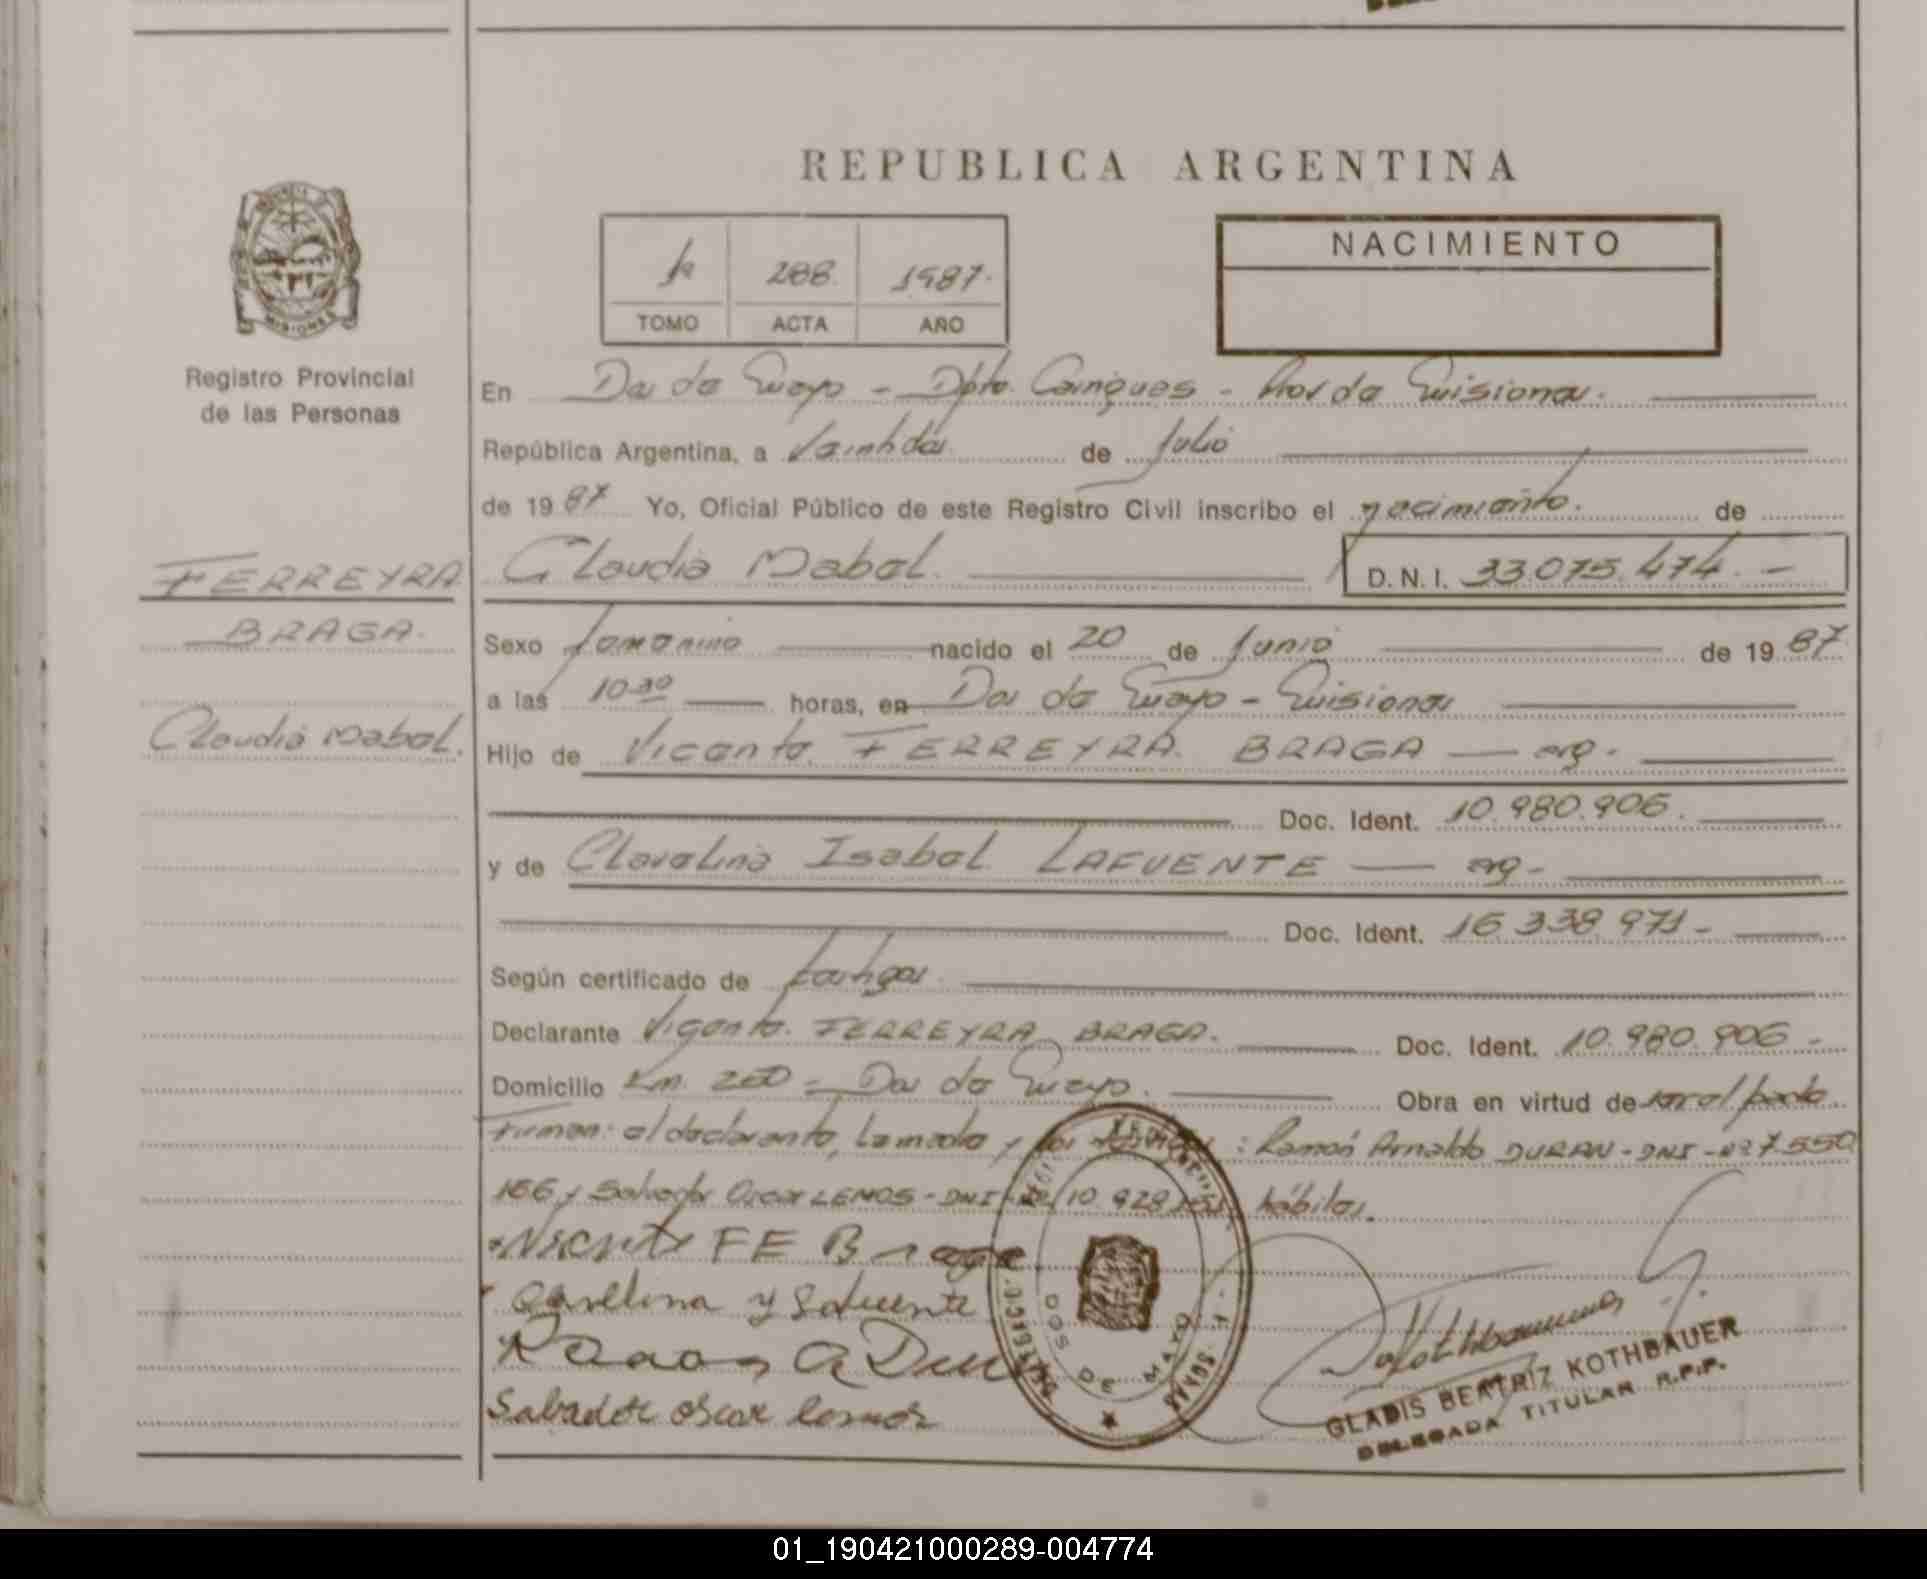 REPUBLICA ARGENTINA
NACIMIENTO
288 1987.
TOMO ACTA AÑO
MISIONES
Registro Provincial
de las Personas
En Dos de Mayo - Dpto. Cainguas - Prov de Misiones.
República Argentina, a veintidos de Julio
de 1987 Yo, Oficial Público de este Registro Civil inscribo el nacimiento. de
FERREYRA
BRAGA.
Claudia Mabel.
Claudia Mabel.
D.N.I. 33.075.474.-
Sexo femenino nacido el 20 de Junio de 1987
a las 10.30 horas, en Dos de Mayo - Misiones
Hijo de Vicente FERREYRA BRAGA - arg.
Doc. Ident. 10.980.906.
y de Clavelina Isabel LAFUENTE - arg-
Doc. Ident. 16 338 971-
Según certificado de testigos.
Declarante Vicente FERREYRA BRAGA. Doc. Ident. 10.980.906-
Domicilio Km. 250 = Dos de Mayo. Obra en virtud de
Firman: el declarante, la madre y los testigos: Ramón Arnaldo DURAN-DNI-Nº 7.550
166 y Salvador Oscar LEMOS-DNI-Nº 10.928 hábiles.
Vicente FE Braga
Lafuente
Salvador oscar lemos
DOS DE MAYO
GLADIS BEATRIZ KOTHBAUER
DELEGADA TITULAR R.P.P.
01_190421000289-004774